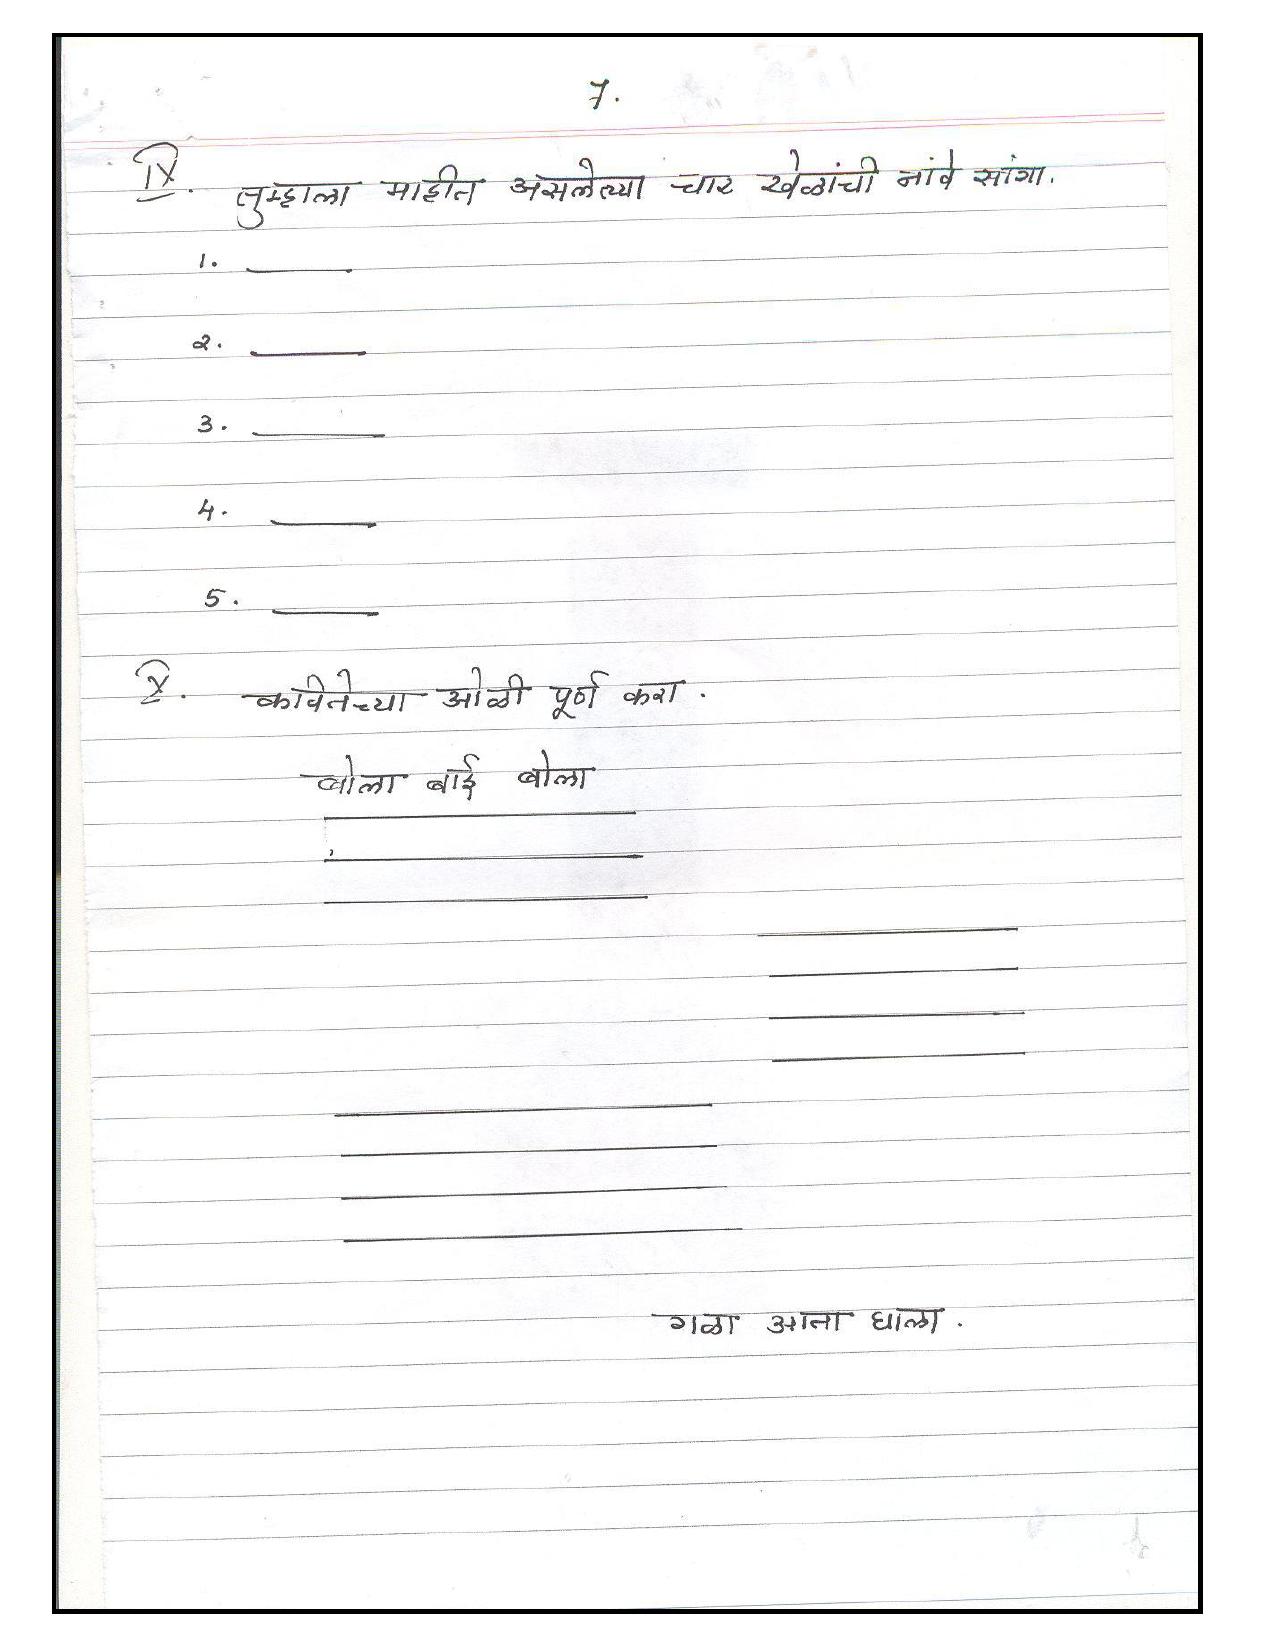 7.
IX. तुम्हाला माहीत असलेल्या चार खेळांची नांवे सांगा.
1.
2.
3.
4.
5.
X. कवितेच्या ओळी पूर्ण करा.
बोला बाई बोला
गळा आता घाला.